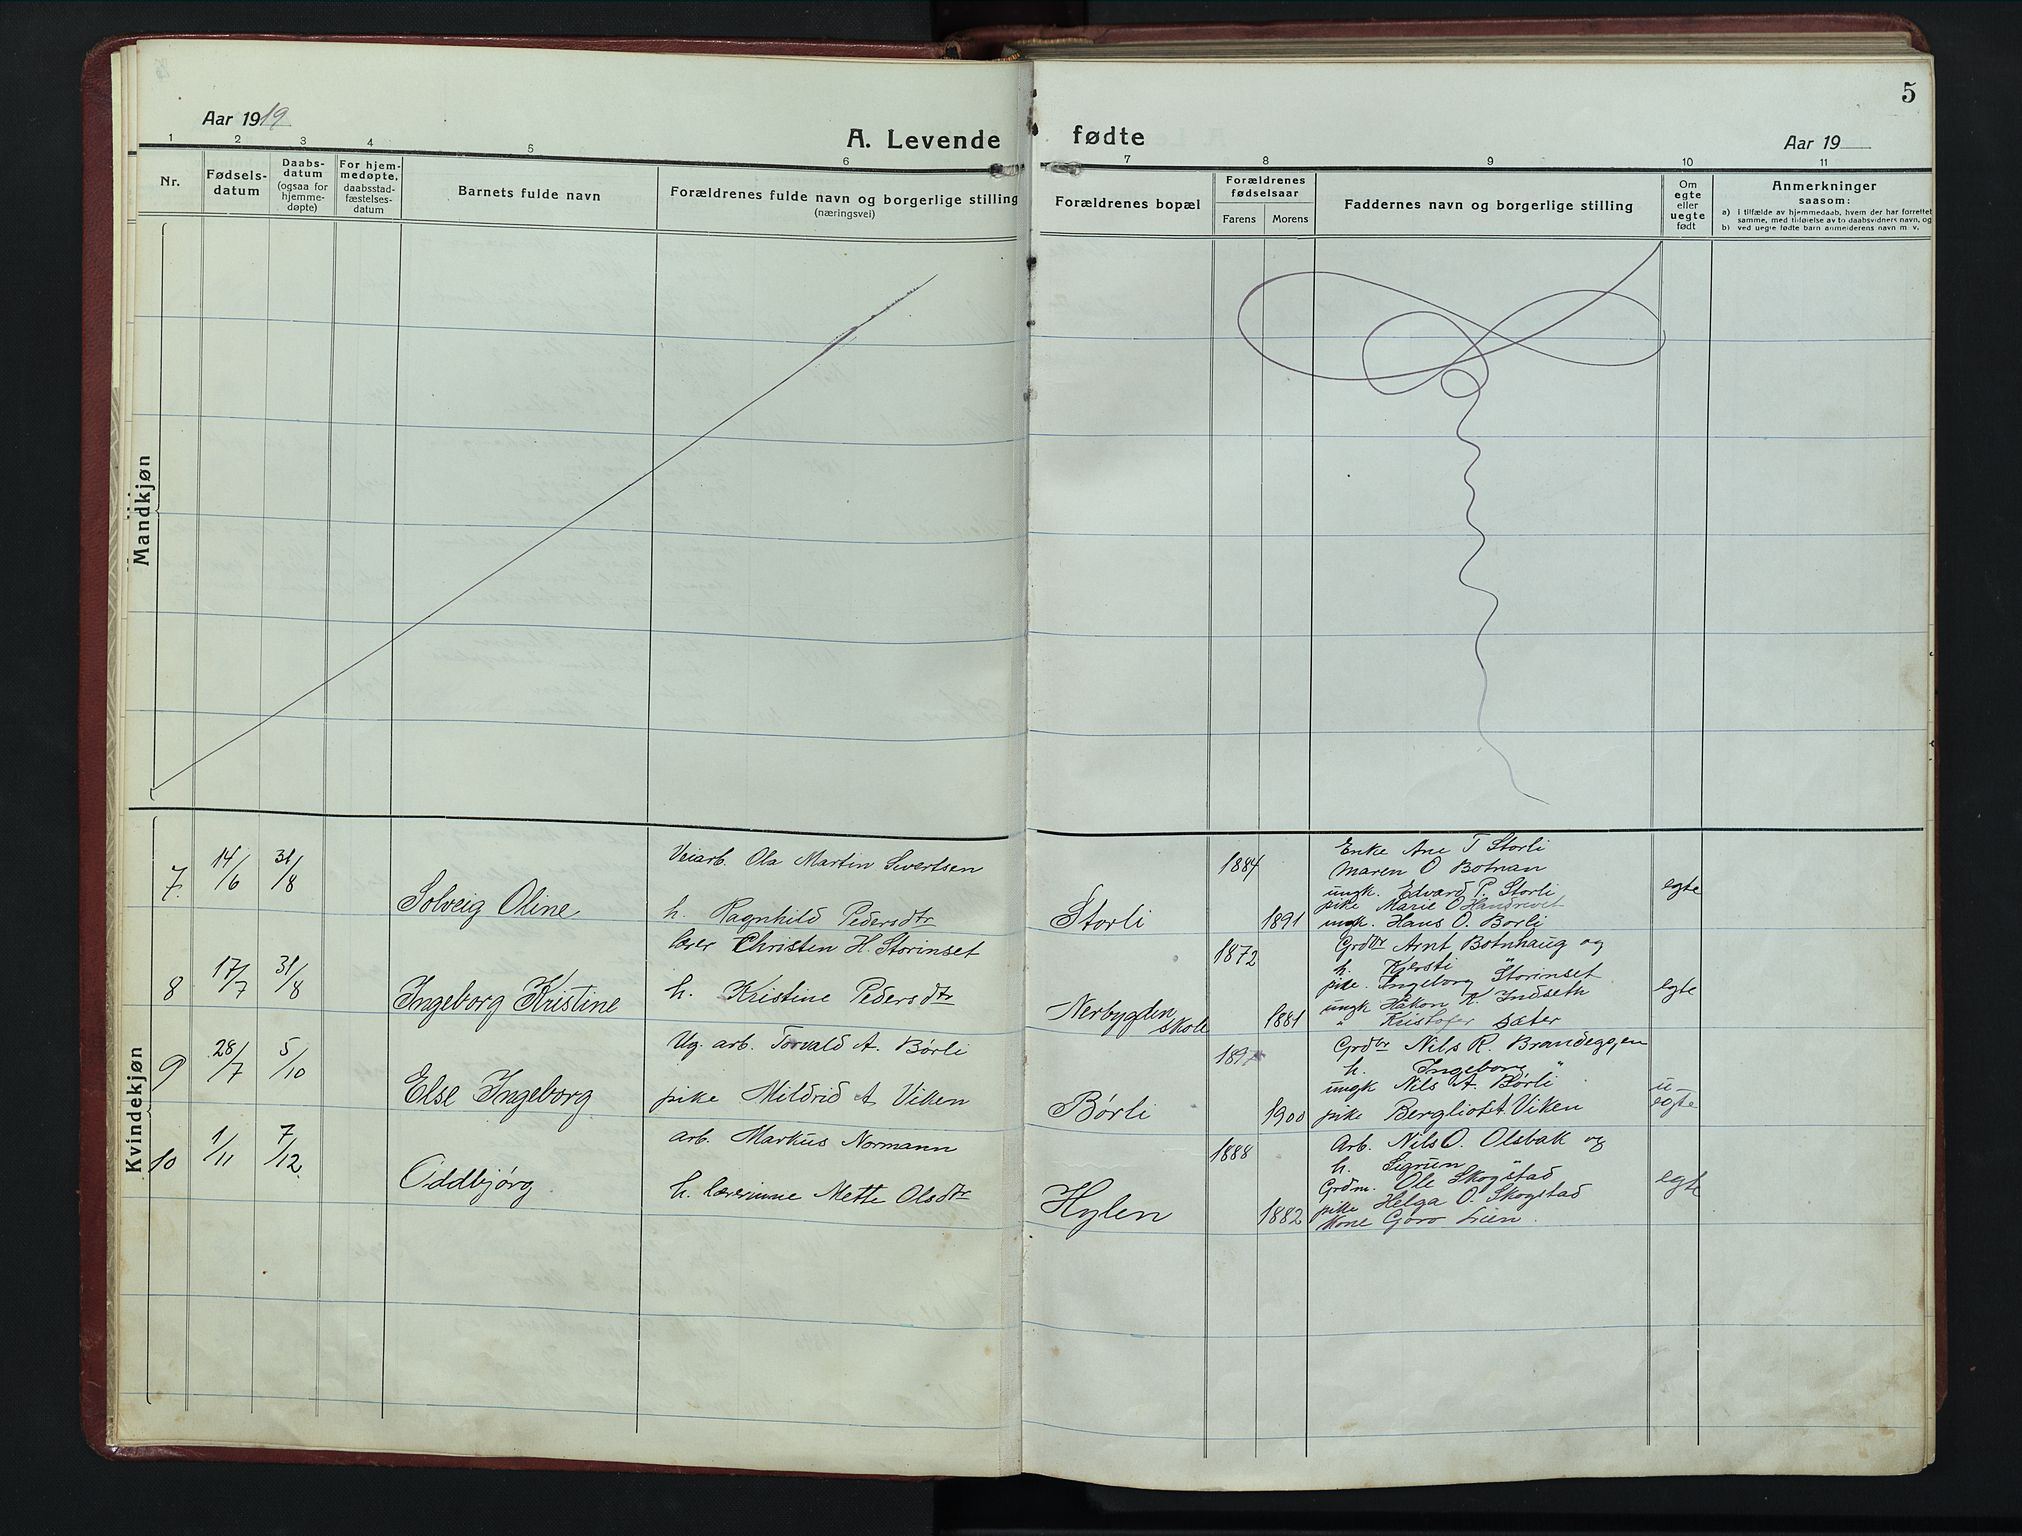 5
Aar 1919
A. Levende fødte
Aar 19
1 2 3 4 5 6 7 8 9 10 11
Nr.
Fødsels-
datum
Daabs-
datum
(ogsaa for
hjemme-
døpte)
For hjem-
medøpte,
daabsstad-
fæstelses-
datum
Barnets fulde navn
Forældrenes fulde navn og borgerlige stilling
(næringsvei)
Forældrenes bopæl
Forældrenes
fødselsaar
Farens Morens
Faddernes navn og borgerlige stilling
Om
egte
eller
uegte
født
Anmerkninger
saasom:
a) i tilfælde av hjemmedaab, hvem der har forrettet
samme, med tilføielse av to daabsvidners navn, og
b) ved uegte fødte barn anmelderens navn m. v.
Mandkjøn
Kvindekjøn
7. 14/6 31/8
Solveig Oline
Veiarb. Ola Martin Sivertsen
h. Ragnhild Pedersdtr
Storli
1884
1891
Enke Ane T Storli
Maren O Botnan
ungk. Edvard P. Storli
pike Marie O Handrevet
ungk. Hans O. Borli
egte
8 17/7 31/8
Ingeborg Kristine
lærer Christen H. Storinset
h. Kristine Pedersdtr
Nerbygden
skole
1872
1881
Grdbr Arnt Botnhaug og
h. Kjersti "
pike. Ingeborg Storinset
ungk Håkon K. Indseth
" Kristofer Sæter
egte
9 28/7 5/10
Else Ingeborg
Ug. arb. Torvald A. Børli
pike Mildrid A Viken
Børli
1897
1900
Grdbr Nils R. Brandeggen
h. Ingeborg "
ungk Nils A. Børli
pike Bergliot Viken
u-
egte
10 1/11 7/12.
Oddbjørg
arb. Markus Normann
h. lærerinne Mette Olsdtr
Hylen
1888
1882
Arb. Nils O. Olsbak og
h. Sigrun "
Grdm. Ole Skogstad
pike Helga O. Skogstad
Kone Goro Lien.
egte